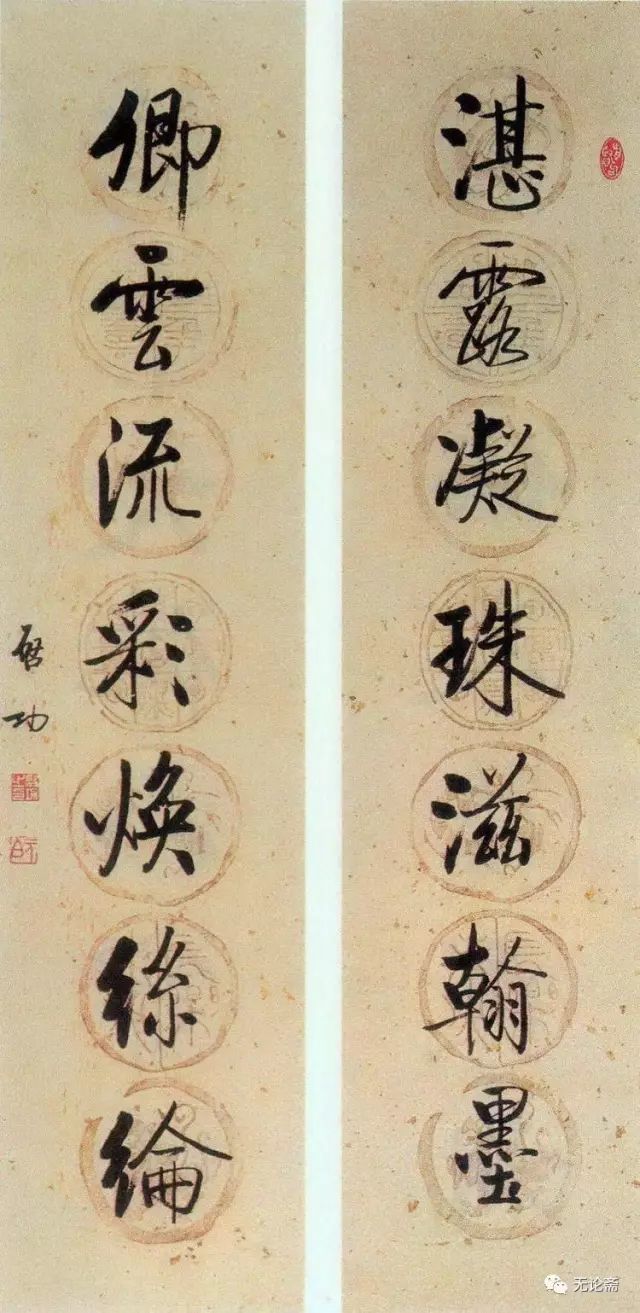 湛露凝珠滋翰墨
卿雲流彩煥絲綸
啓功
无论斋